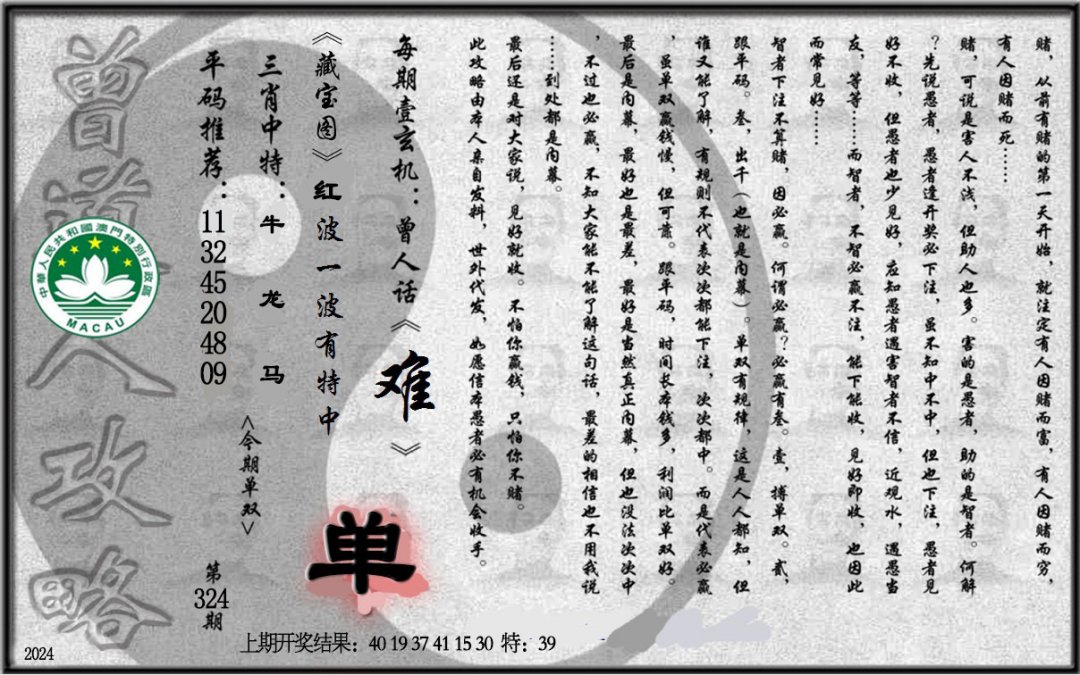 赌，从前有赌的第一天开始，就注定有人因赌而富，有人因赌而穷，
有人因赌而死……
赌，可说是害人不浅，但助人也多。害的是愚者，助的是智者。何解
？先说愚者，愚者逢开奖必下注，虽不知中不中，但也下注，愚者见
好不收，但愚者也少见好，应知愚者遇害智者不信，近观水，遇愚当
友，等等……而智者，不智必赢不注，能下能收，见好即收，也因此
而常见好……
智者下注不算赌，因必赢。何谓必赢？必赢有叁。壹，搏单双。贰，
跟平码。叁，出千（也就是内幕）。单双有规律，这是人人都知，但
谁又能了解，有规则不代表次次都能下注，次次都中。而是代表必赢
，虽单双赢钱慢，但可靠。跟平码，时间长本钱多，利润比单双好。
最后是内幕，最好也是最差，最好是当然真正内幕，但也没法次次中
，不过也必赢，不知大家能不能了解这句话，最差的相信也不用我说
……到处都是内幕。
最后还是对大家说，见好就收。不怕你赢钱，只怕你不赌。
此攻略由本人亲自发料，世外代发，如愿信本愚者必有机会收手。
每期壹玄机：曾人话《难》
《藏宝图》红波一波有特中
三肖中特：牛 龙 马
平码推荐：11 32 45 20 48 09
<今期单双>
单
第324期
曾道人攻略
中華人民共和國澳門特別行政區
MACAU
上期开奖结果：40 19 37 41 15 30 特：39
2024